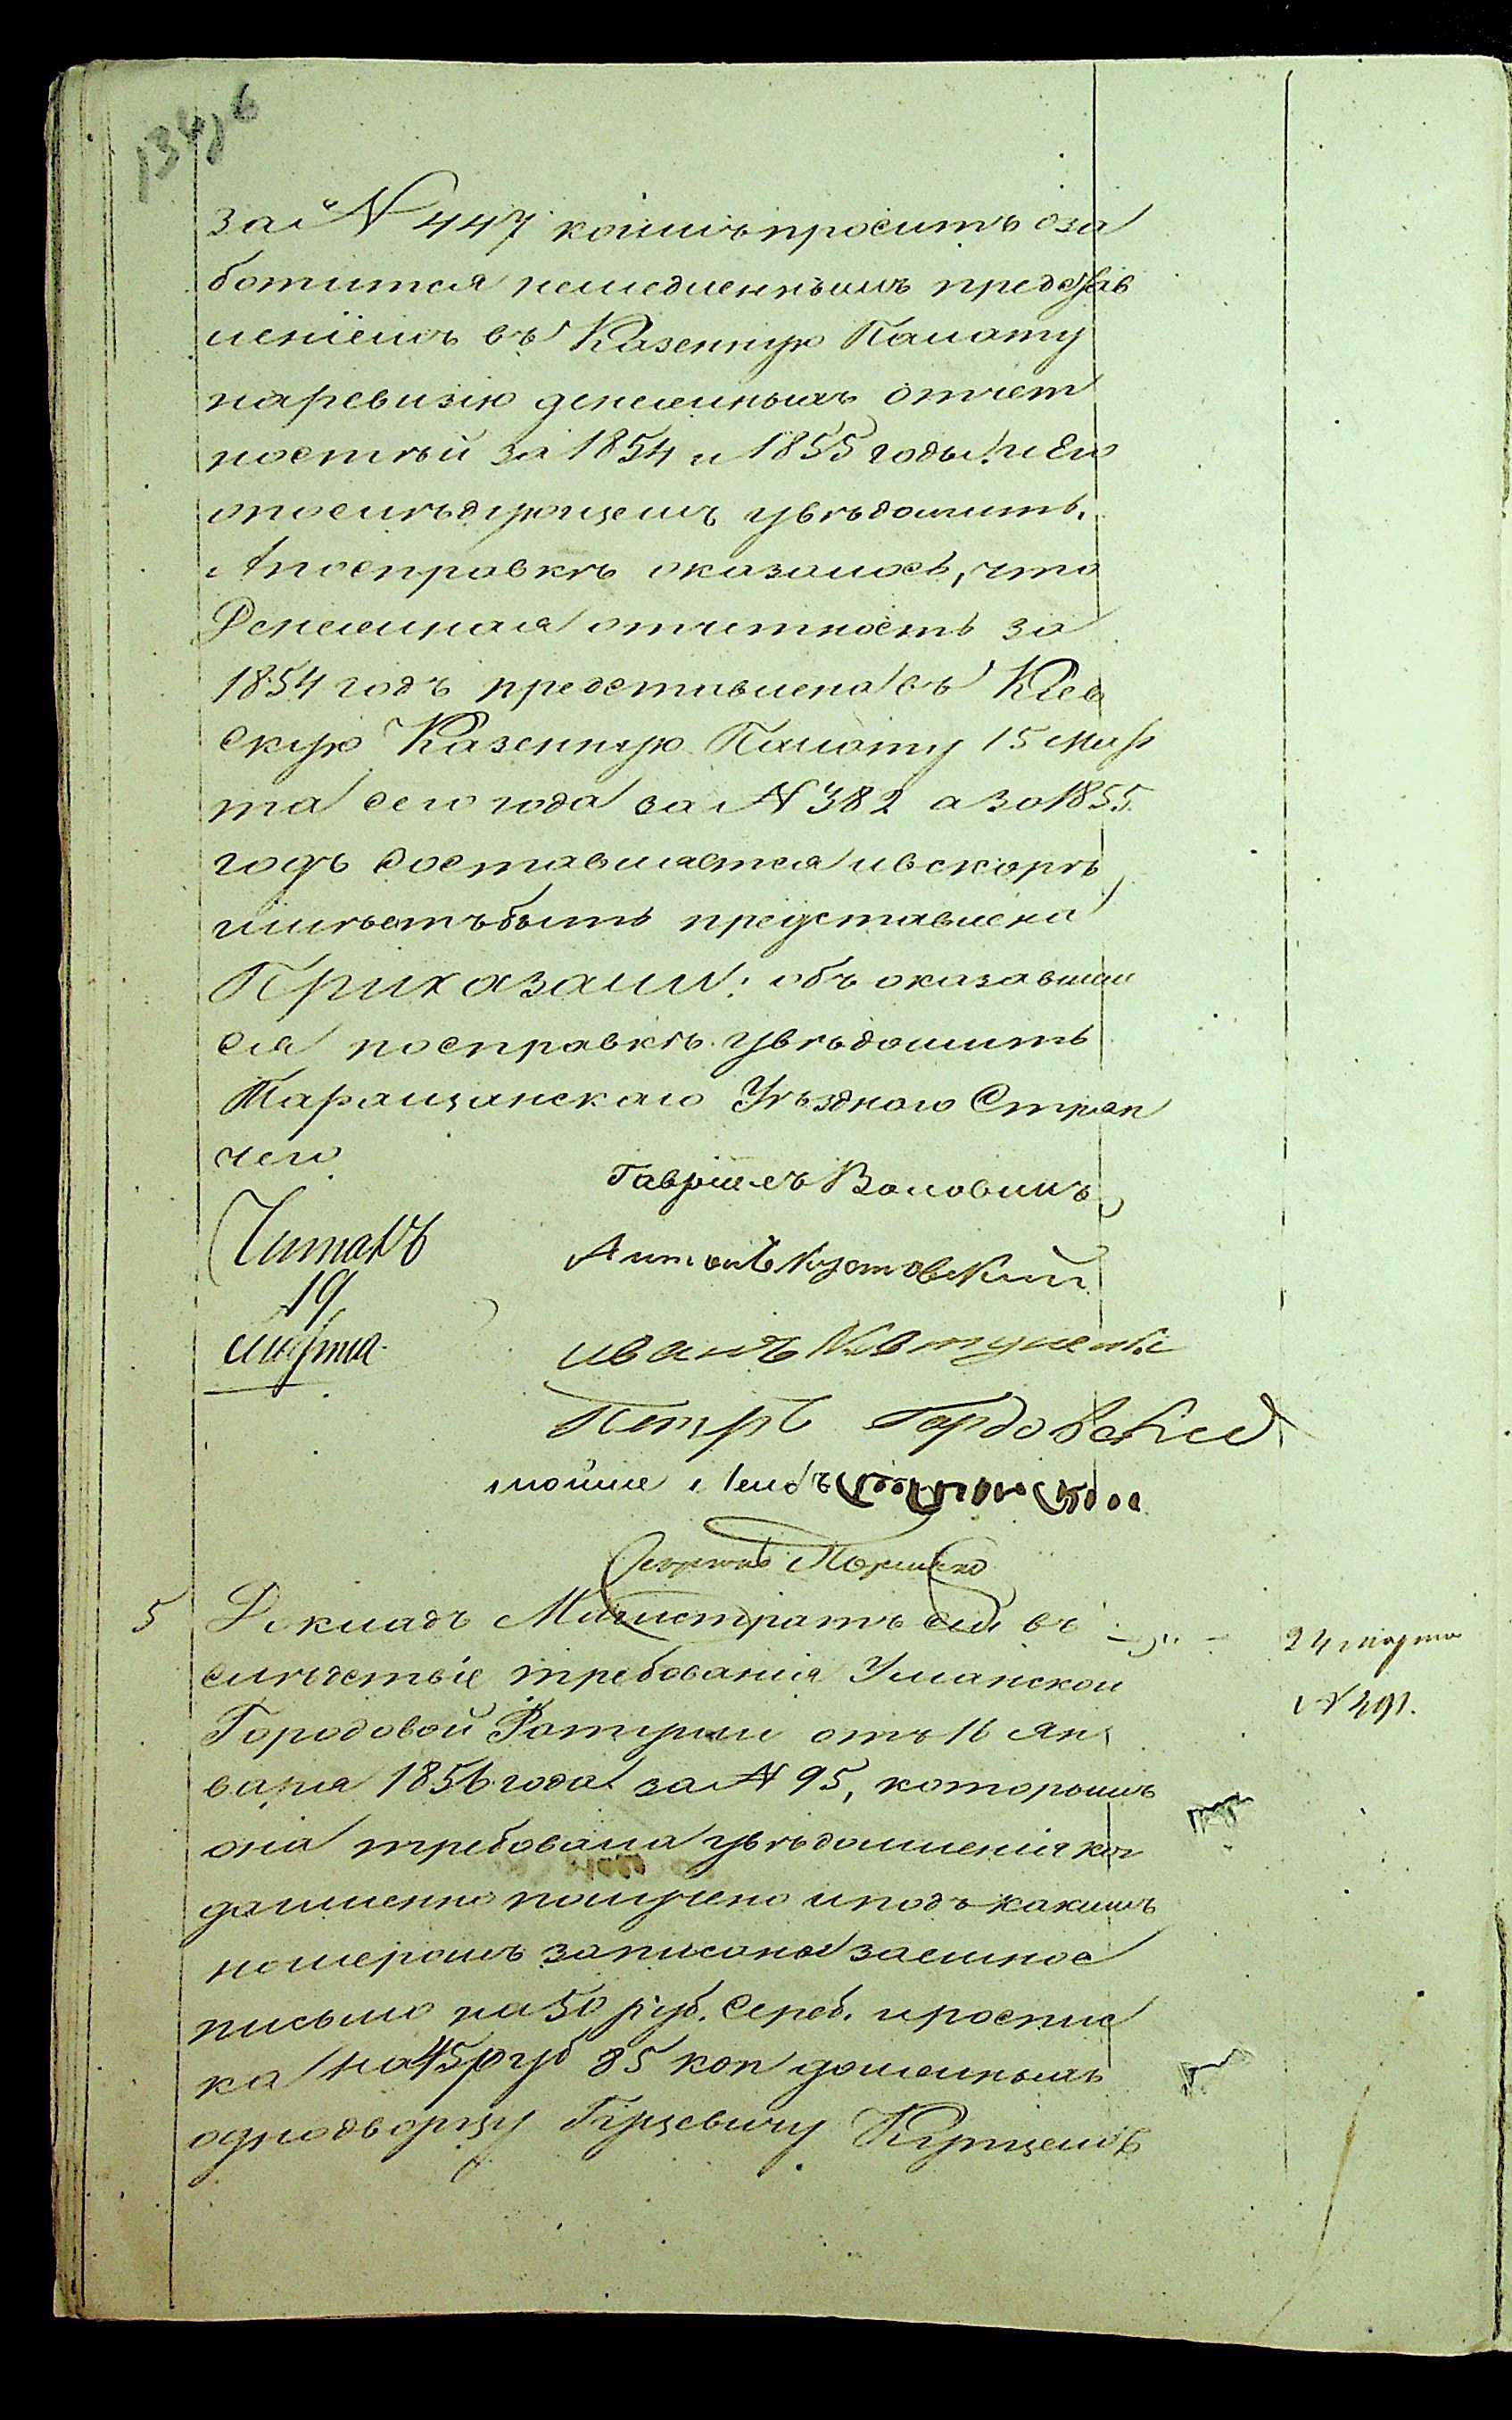 за N 447 коимъ проситъ оза
ботится немедленнымъ представ
леніемъ въ Казенную Палату
наревизію денежныхъ отчет
ностъй за 1854 и 1855 годы. и Его
опослѣдующемъ увѣдомить.
Апосправкѣ оказалось, что
Денежная отчетность за
1854 годъ представлена въ Кіев
скую Казенную Палату 15 мар
та сего года за N 382 а за 1855
годъ составляется ивскорѣ
имѣетъ быть представлена
Приказали: объ оказавшем
ся посправкѣ увѣдомить
Таращанскаго Уѣзднаго Стряп
чего
Гавріилъ Воловикъ
Читалъ
19
марта
Антонъ Кустовскій
иванъ
Петръ Гордовскій
мойше Лейбъ
5 Докладъ Магистратъ сей въ
слѣдствіе требованія Уманской
Городовой Ратуши отъ 16 Ян
варя 1856 года за N 95, которымъ
она требовала увѣдомленія ког
даименно получено иподъ какимъ
номеромъ записано заемное
письмо на 50 руб. сереб. ироспис
ка на 45 руб 85 коп данныхъ
однодворцу Гуцевичу Купцемъ
24 марта
N 391.